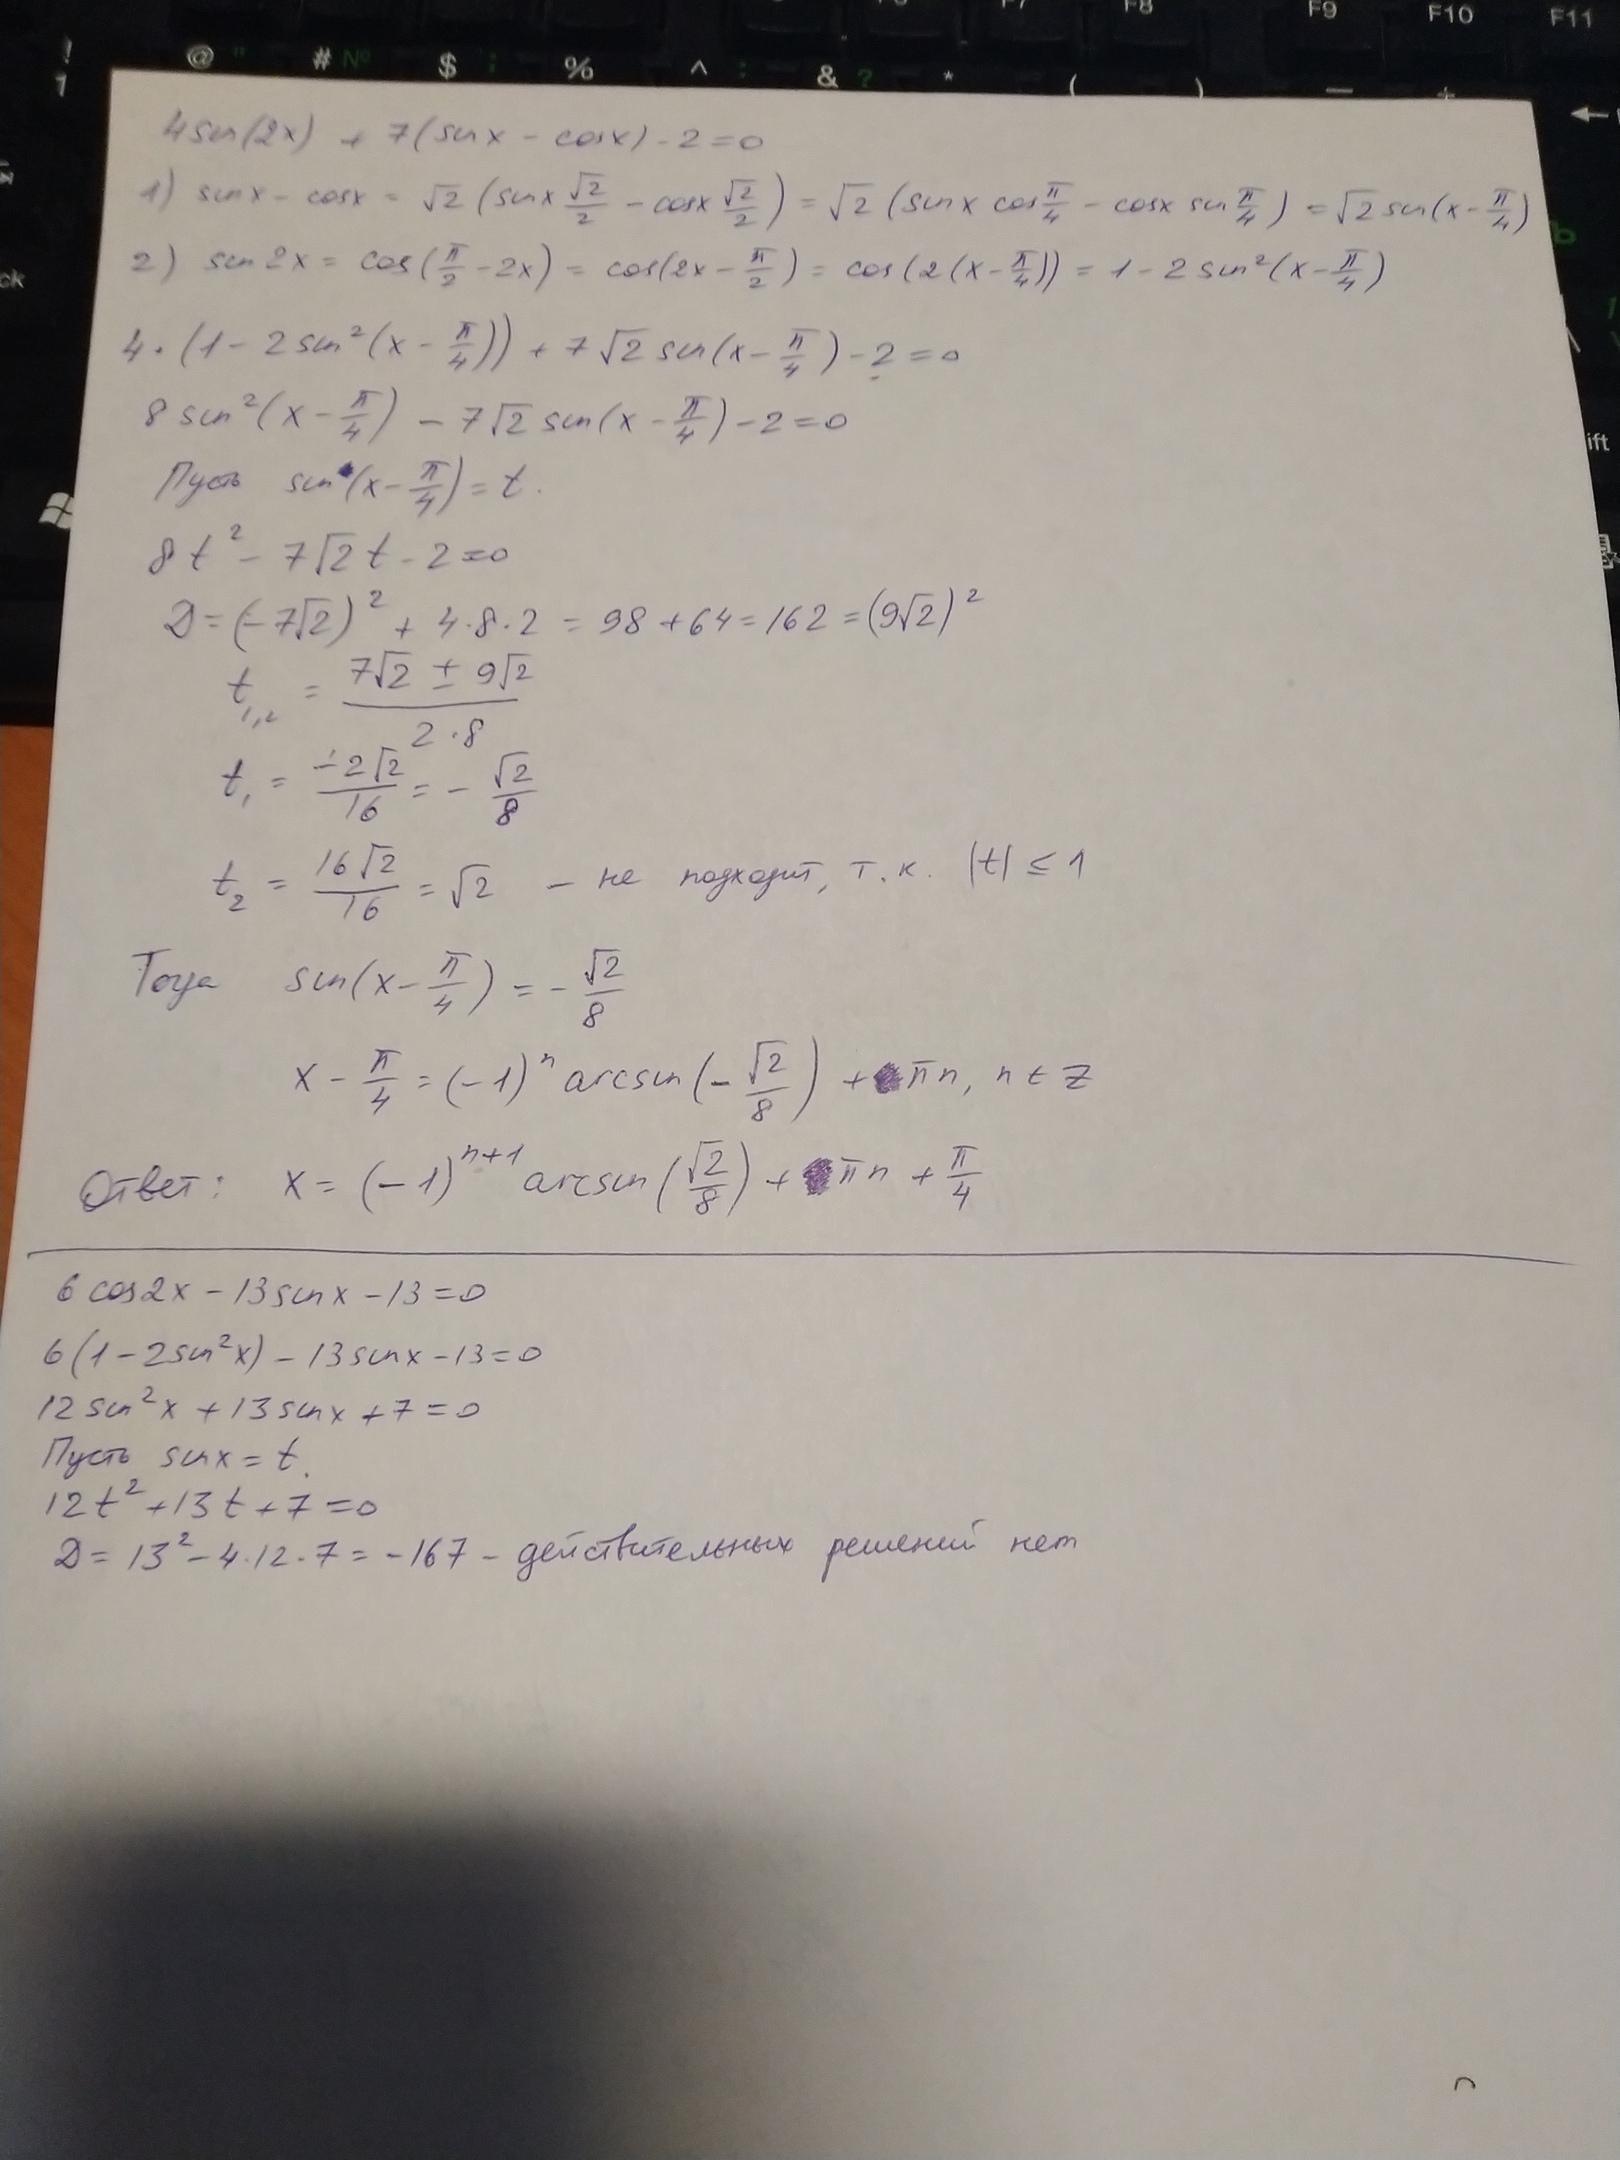 ! @ " # № $ ; % ^ : & ? * ( ) — + F7 F8 F9 F10 F11
1
4sin(2x) + 7(sinx - cosx) - 2 = 0
1) sinx - cosx = √2 (sinx √2/2 - cosx √2/2) = √2 (sinx cos π/4 - cosx sin π/4) = √2 sin(x - π/4)
2) sin2x = cos(π/2 - 2x) = cos(2x - π/2) = cos(2(x - π/4)) = 1 - 2 sin²(x - π/4)
4·(1 - 2sin²(x - π/4)) + 7√2 sin(x - π/4) - 2 = 0
8 sin²(x - π/4) - 7√2 sin(x - π/4) - 2 = 0
Пусть sin(x - π/4) = t.
8t² - 7√2 t - 2 = 0
D = (-7√2)² + 4·8·2 = 98 + 64 = 162 = (9√2)²
t₁,₂ = (7√2 ± 9√2)/(2·8)
t₁ = -2√2/16 = - √2/8
t₂ = 16√2/16 = √2 - не подходит, т.к. |t| ≤ 1
Тогда sin(x - π/4) = - √2/8
x - π/4 = (-1)ⁿ arcsin(- √2/8) + πn, n ∈ Z
Ответ: x = (-1)ⁿ⁺¹ arcsin(√2/8) + πn + π/4
6 cos2x - 13sinx - 13 = 0
6(1 - 2sin²x) - 13sinx - 13 = 0
12 sin²x + 13sinx + 7 = 0
Пусть sinx = t.
12t² + 13t + 7 = 0
D = 13² - 4·12·7 = -167 - действительных решений нет